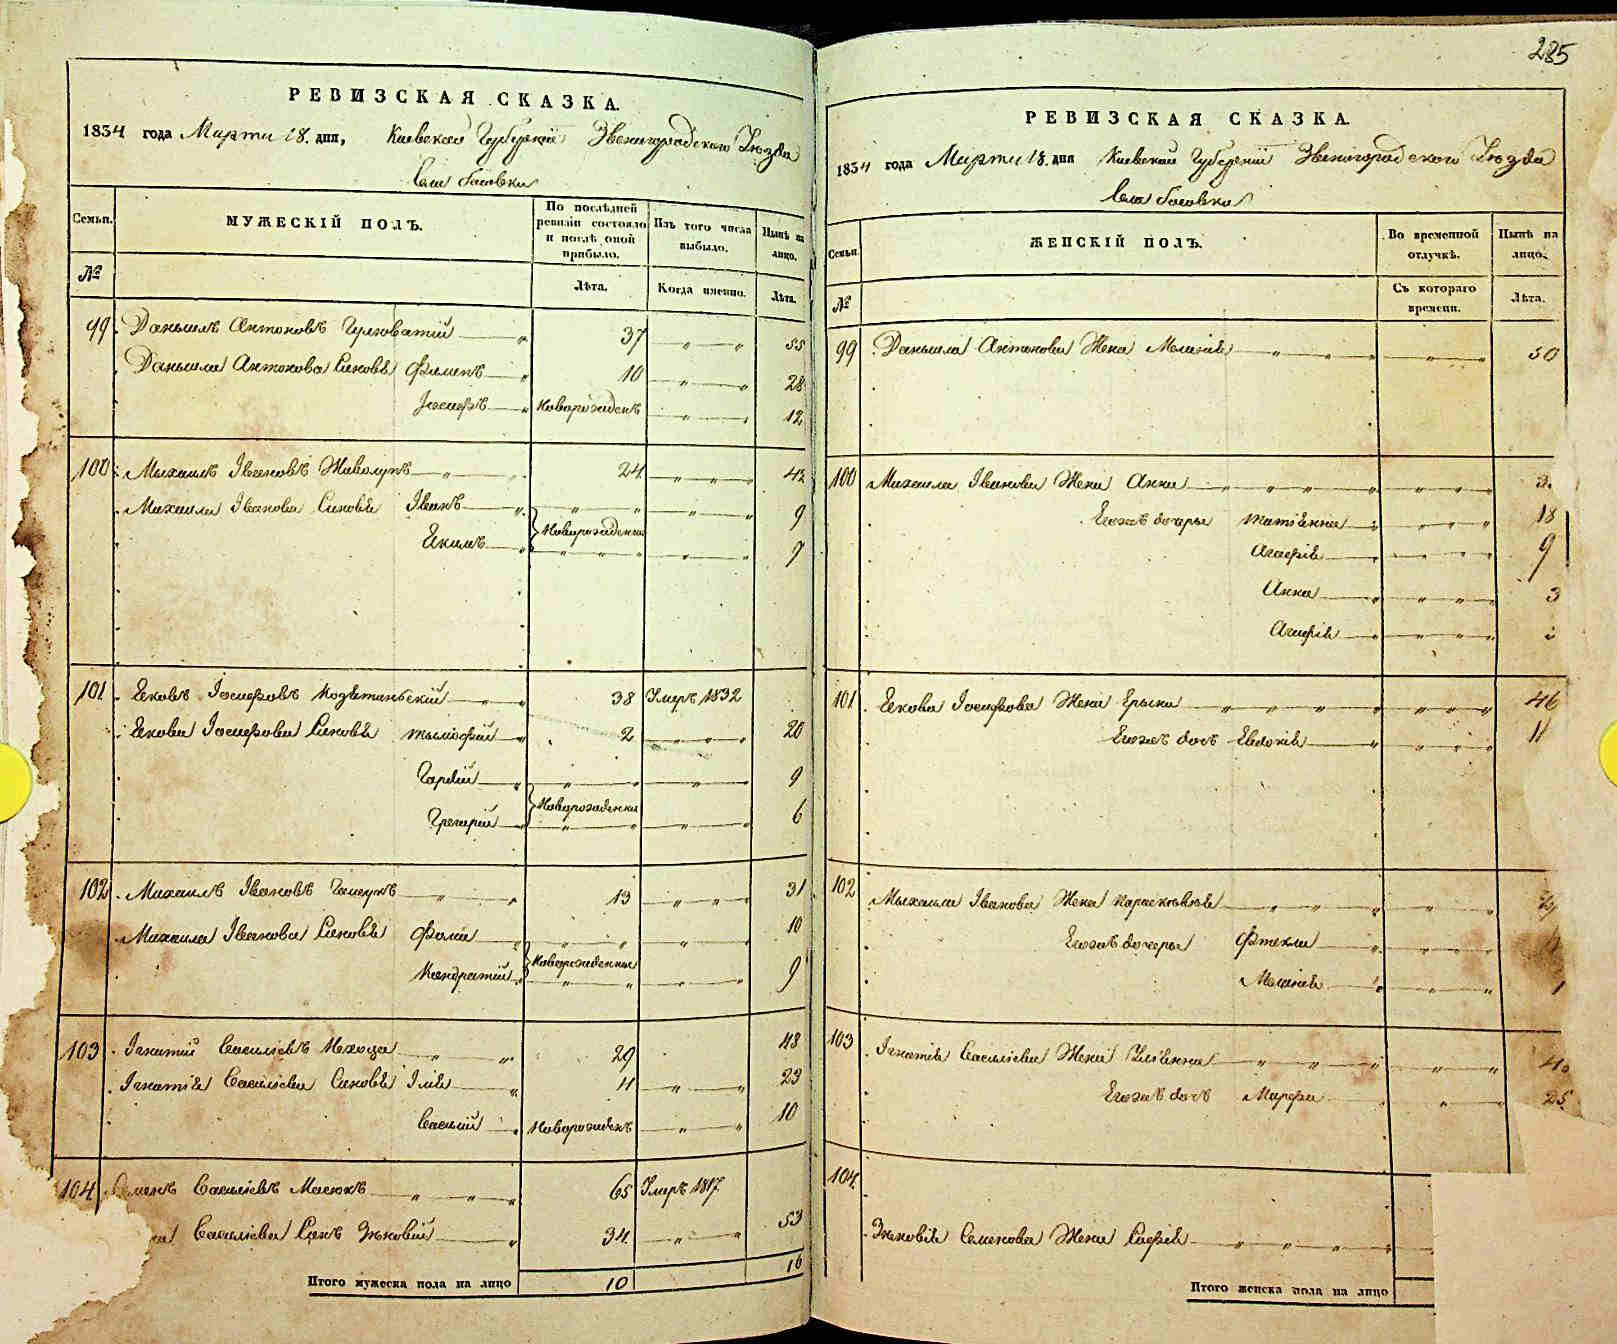 285
РЕВИЗСКАЯ СКАЗКА.
1834 года Марта 18. дня, Киевской Губерніи Звенигородского Уѣзда
Села Басовки
Семьи. МУЖЕСКІЙ ПОЛЪ. По послѣдней ревизіи состояло и послѣ оной прибыло. Изъ того числа выбыло. Нынѣ на лицо.
№ Лѣта. Когда именно. Лѣта.
99 Данылъ Антоновъ 37 55
Даныла Антонова Синовѣ Филипъ 10 28
Іосифъ Новорожденъ 12
100 Михаилъ Івановъ 24 42
Михаила Іванова Синовѣ Іванъ 9
Новорожденни
Екимъ 7
101 Яковъ Іосифовъ 38 Умеръ 1832
Якова Іосифова Синовѣ Тымофій 2 20
Гордій 9
Новорожденни
Григорій 6
102 Михаилъ Івановъ 13 31
Михаила Іванова Синовѣ Фома 10
Новорожденни
Кондратій 9
103 Ігнатій Васыліевъ 29 48
Ігнатія Васыліева Синовѣ Ілія 4 23
Васылій Новорожденъ 10
104 Васыліевъ Масюкъ 65 Умеръ 1817
Васыліева Синъ Зѣновій 34 53
Итого мужеска пола на лицо 10 16
РЕВИЗСКАЯ СКАЗКА.
1834 года Марта 18. дня Киевской Губерніи Звенигородского Уѣзда
Села Басовки
Семьи. ЖЕНСКІЙ ПОЛЪ. Во временной отлучкѣ. Нынѣ на лицо.
№ Съ котораго времени. Лѣта.
99 Даныла Антонова Жена Меланія 50
100 Михаила Іванова Жена Анна
Егожъ дочеры Татіанна 18
Агафія 9
Анна 3
Агафія
101 Якова Іосифова Жена Ерына 46
Егожъ дочъ Евдокія 11
102 Мыхаила Іванова Жена Параскѣвія
Егожъ дочеры Фтекла
Меланія 1
103 Ігнатія Васыліева Жена Уліянна
Егожъ дочъ Марфа 25
104.
Зѣновія Семенова Жена Софія
Итого женска пола на лицо